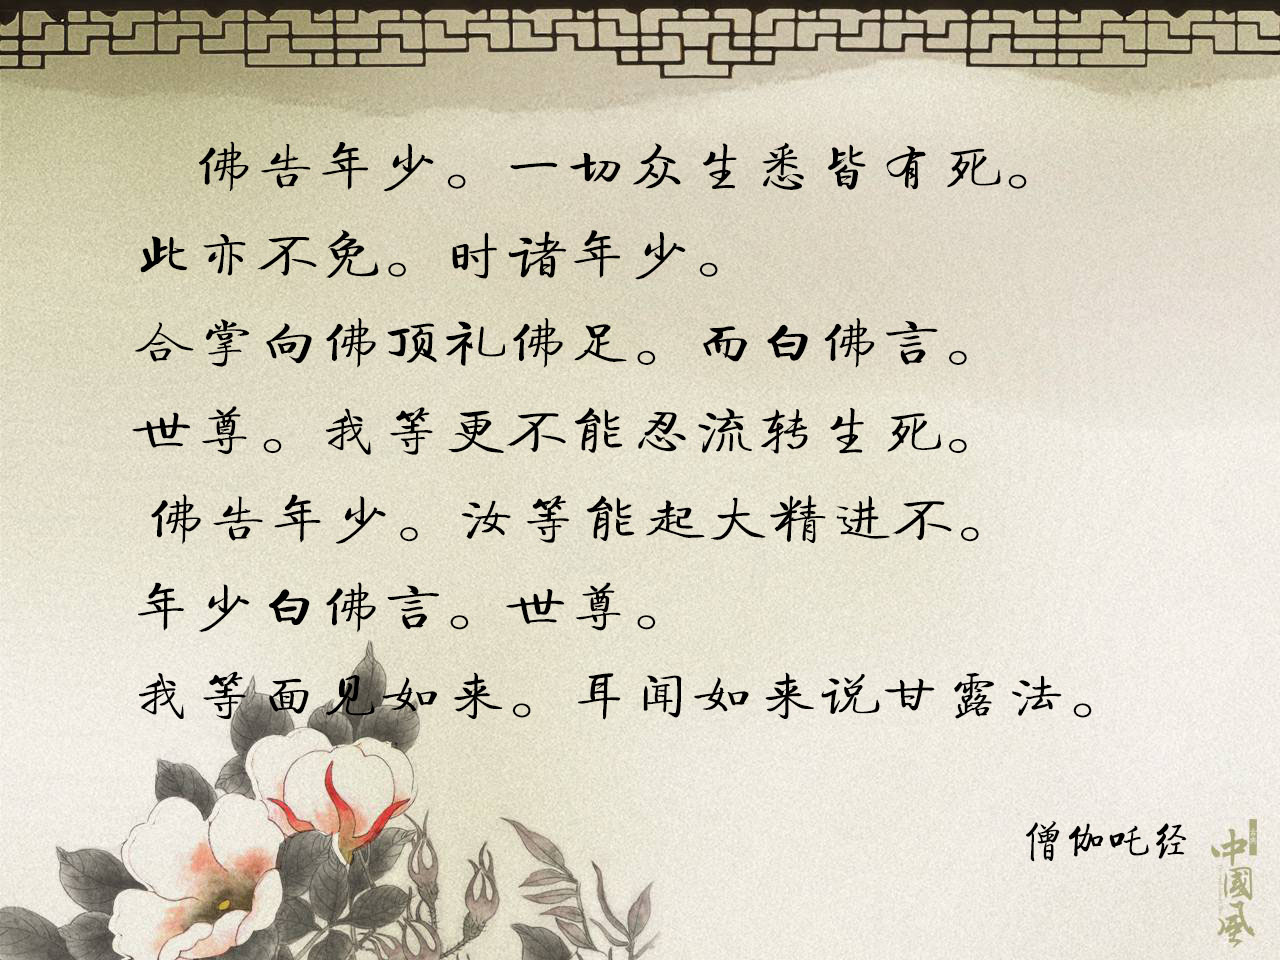 佛告年少。一切众生悉皆有死。
此亦不免。时诸年少。
合掌向佛顶礼佛足。而白佛言。
世尊。我等更不能忍流转生死。
佛告年少。汝等能起大精进不。
年少白佛言。世尊。
我等面见如来。耳闻如来说甘露法。
僧伽吒经
中国风